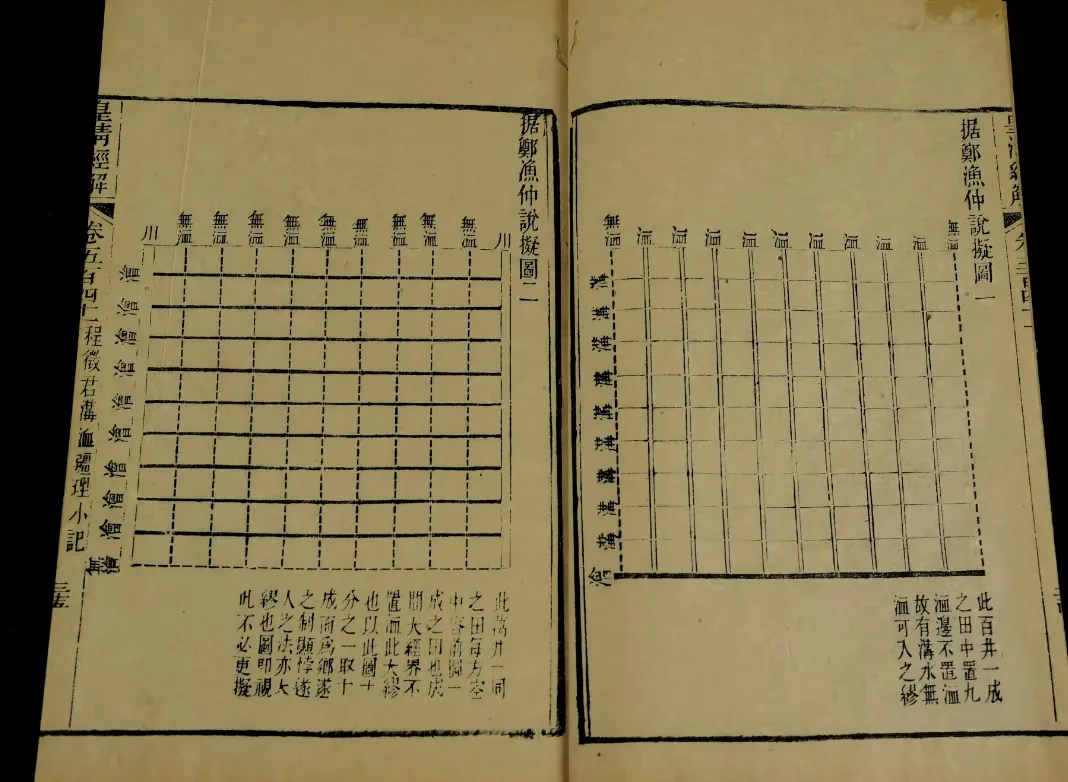 皇清經解
据鄭漁仲說擬圖一
無洫
洫
洫
洫
洫
洫
洫
洫
洫
洫
無洫
溝
溝
溝
溝
溝
溝
溝
溝
溝
澮
此百井一成
之田中置九
洫邊不置洫
故有溝水無
洫可入之繆
据鄭漁仲說擬圖二
川
無洫
無洫
無洫
無洫
無洫
無洫
無洫
無洫
無洫
川
澮
澮
澮
澮
澮
澮
澮
澮
澮
無澮
此萬井一同
之田每方空
中容前圖一
成之田也成
間大經界不
置洫此大繆
也以此圖十
分之一取十
成而爲鄉遂
之制顯悖遂
人之法亦大
繆也圖即視
此不必更擬
皇清經解
卷五百四十一
程徵君溝洫疆理小記